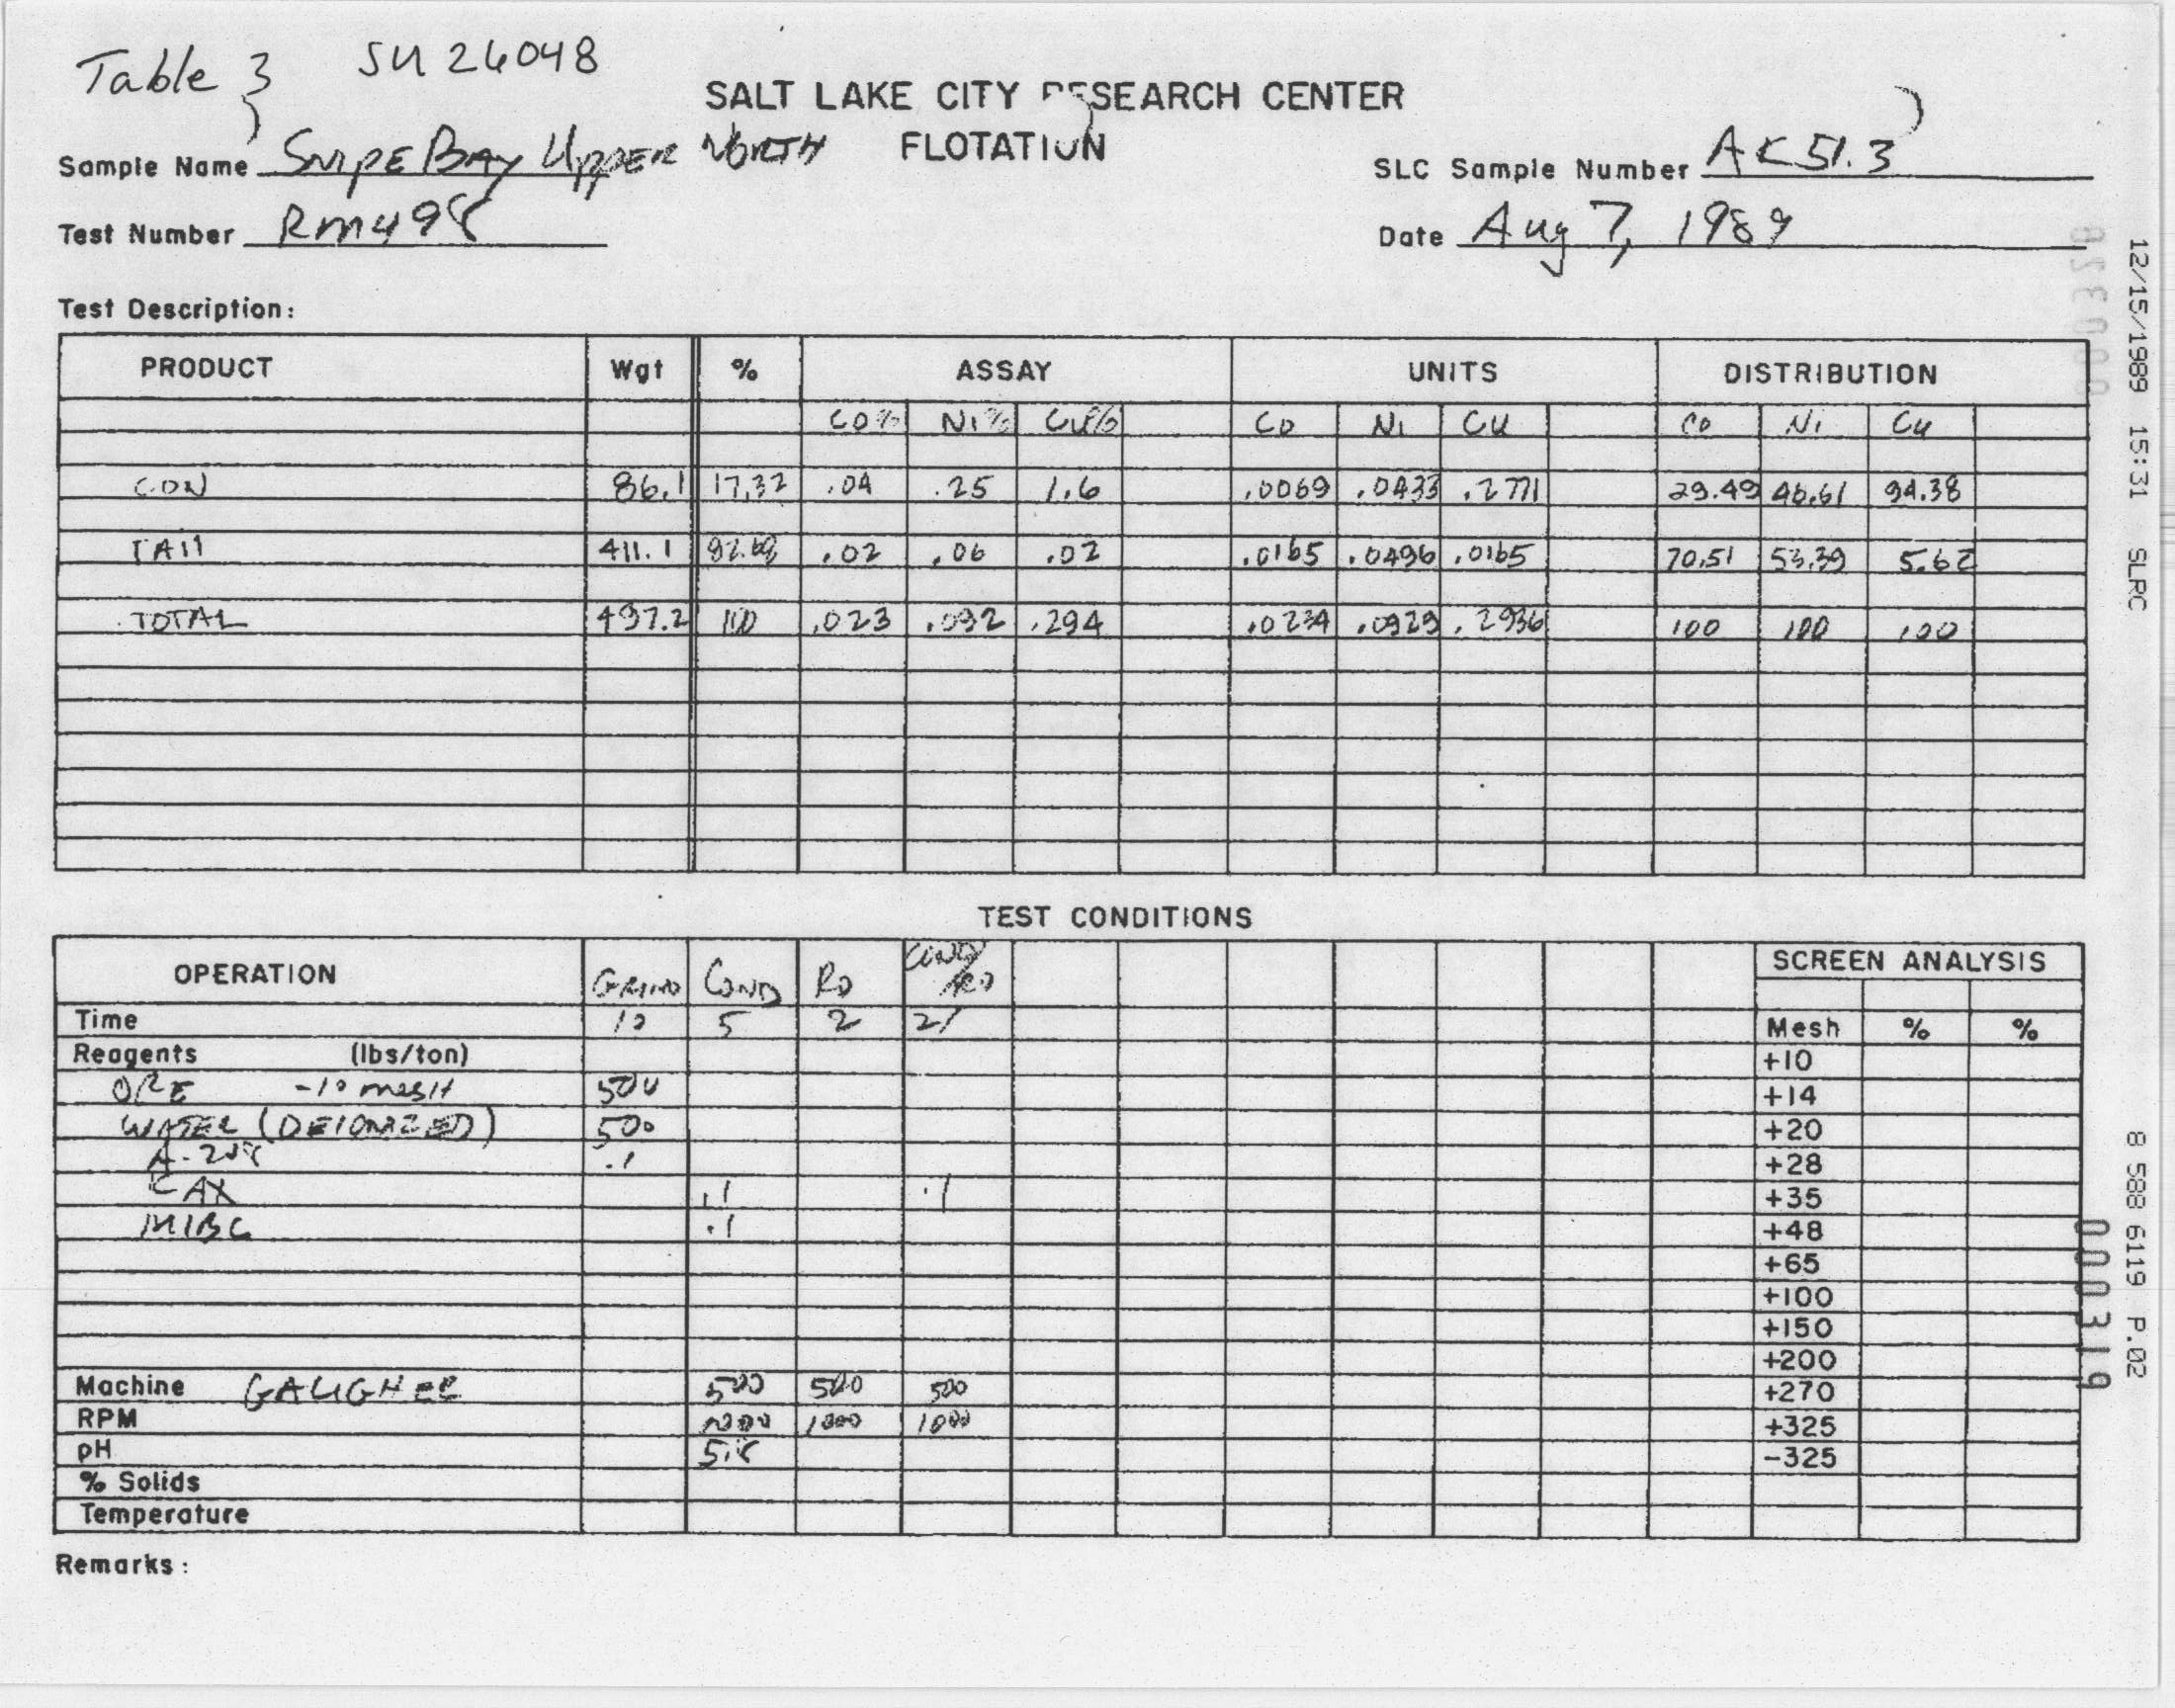 Table 3 SU 26048
SALT LAKE CITY RESEARCH CENTER
FLOTATION
Sample Name SNIPE BAY UPPER NORTH
SLC Sample Number AK 51.3
Test Number RM498
Date Aug 7, 1989
Test Description:
PRODUCT Wgt % ASSAY UNITS DISTRIBUTION
CO% Ni% Cu% Co Ni Cu Co Ni Cu
CON 86.1 17.32 .04 .25 1.6 .0069 .0433 .2771 29.49 46.61 94.38
TAIl 411.1 82.68 .02 .06 .02 .0165 .0496 .0165 70.51 53.39 5.62
TOTAL 497.2 100 .023 .092 .294 .0234 .0929 .2936 100 100 100
TEST CONDITIONS
OPERATION GRIND COND RO COND/RO
SCREEN ANALYSIS
Time 10 5 2 2/
Mesh % %
Reagents (lbs/ton)
+10
ORE -10 mesH 500
+14
WATER (DEIONIZED) 500
+20
A-208 .1
+28
CAX .1 .1
+35
MIBC .1
+48
+65
+100
+150
+200
Machine GALIGHER 500 500 500
+270
RPM 1000 1000 1000
+325
pH 5.8
-325
% Solids
Temperature
Remarks:
12/15/1989 15:31 SLRC 8 588 6119 P.02
000319